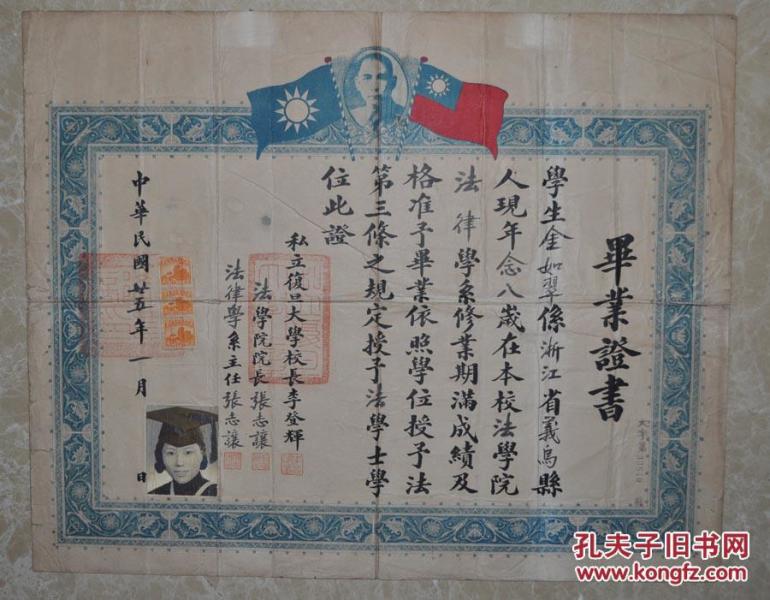 畢業證書
學生金如翠係浙江省義烏縣
人現年念八歲在本校法學院
法律學系修業期滿成績及
格准予畢業依照學位授予法
第三條之規定授予法學士學
位此證
私立復旦大學校長李登輝
法學院院長張志讓
法律學系主任張志讓
中華民國廿五年一月 日
孔夫子旧书网
www.kongfz.com